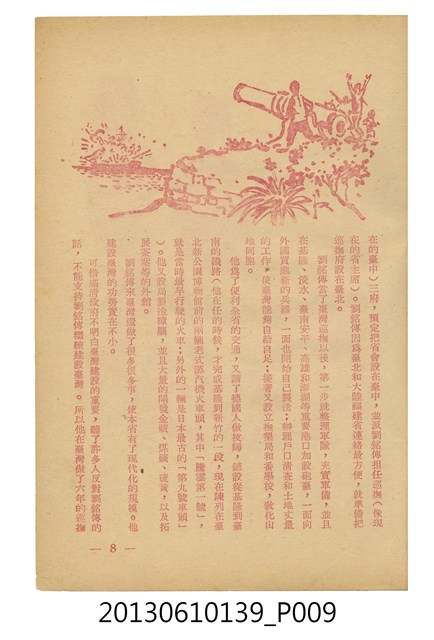 在的臺中）三府，預定把省會設在臺中，並派劉銘傳担任巡撫（像現
在的省主席）。劉銘傳因爲臺北和大陸福建省連絡最方便，就準備把
巡撫府設在臺北。
劉銘傳當了臺灣巡撫以後，第一步就整理軍隊，充實軍備，並且
在基隆、淡水、臺南安平、高雄和澎湖等重要港口加設砲臺，一面向
外國買進新的兵器，一面也開始自己製造；辦理戶口清查和土地丈量
的工作，使臺灣能夠自給自足；後來又設立撫墾局和番學校，敎化山
地同胞。
他爲了便利全省的交通，又請了德國人做技師，舖設從基隆到臺
南的鐵路（他在任的時候，才完成基隆到新竹的一段，現在陳列在臺
北新公園博物館前的兩輛老式蒸汽機火車頭，其中「騰雲第一號」，
就是當時最早行駛的火車；另外的一輛是日本最古的「第九號車頭」
）。他又設局製造樟腦，並且大量的開發金礦、煤礦、硫黃，以及拓
展茶葉等的外銷。
劉銘傳來臺灣儘做了很多很多事，使本省有了現代化的規模。他
建設臺灣的功勞實在不小。
可惜滿清政府不明白臺灣建設的重要，聽了許多人反對劉銘傳的
話，不能支持劉銘傳繼續建設臺灣。所以他在臺灣做了六年的巡撫
— 8 —
20130610139_P009